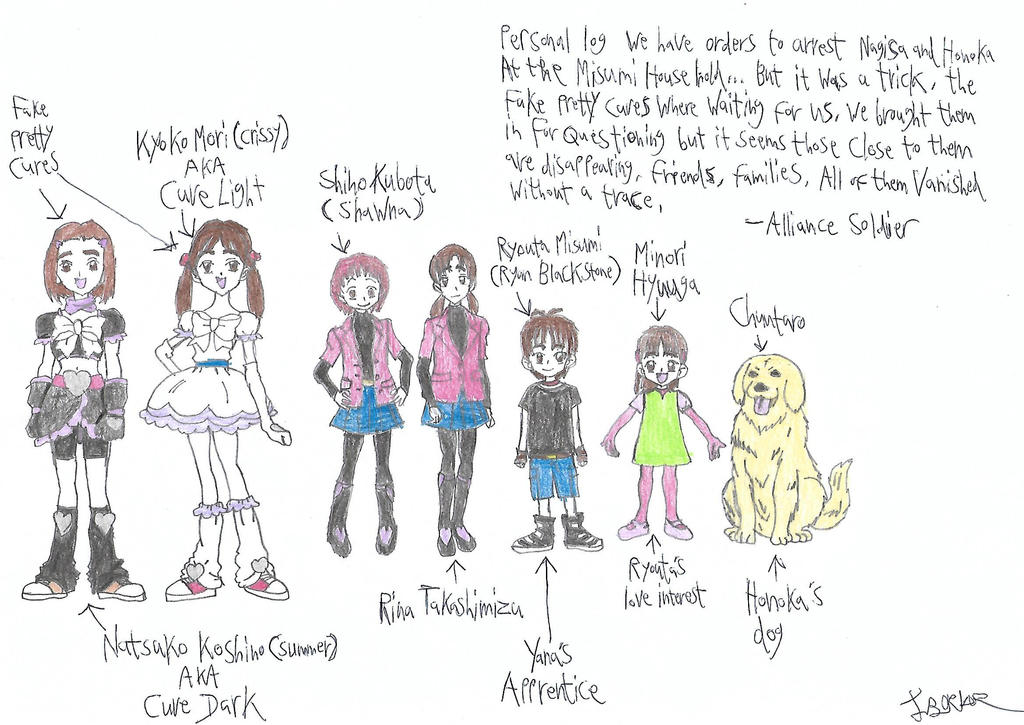 Personal log We have orders to arrest Nagisa and Honoka
At the Misumi House hold... But it was a trick, the
Fake Pretty Cures where waiting for us, we brought them
in for Questioning but it seems those close to them
are disappearing, Friends, families, All of them Vanished
without a trace,
-Alliance Soldier
Fake
Pretty
Cures
Kyoko Mori (Crissy)
AKA
Cure Light
Shiho Kubota
(Shawna)
Ryouta Misumi
(Ryan Blackstone)
Minori
Hyuuga
Chuutaro
Natsuko Koshino (Summer)
AKA
Cure Dark
Rina Takashimizu
Yana's
Apprentice
Ryouta's
love interest
Honoka's
dog